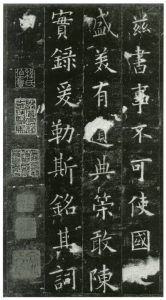 兹書事不可使國
盛美有遺典策敢陳
實録爰勒斯銘其詞